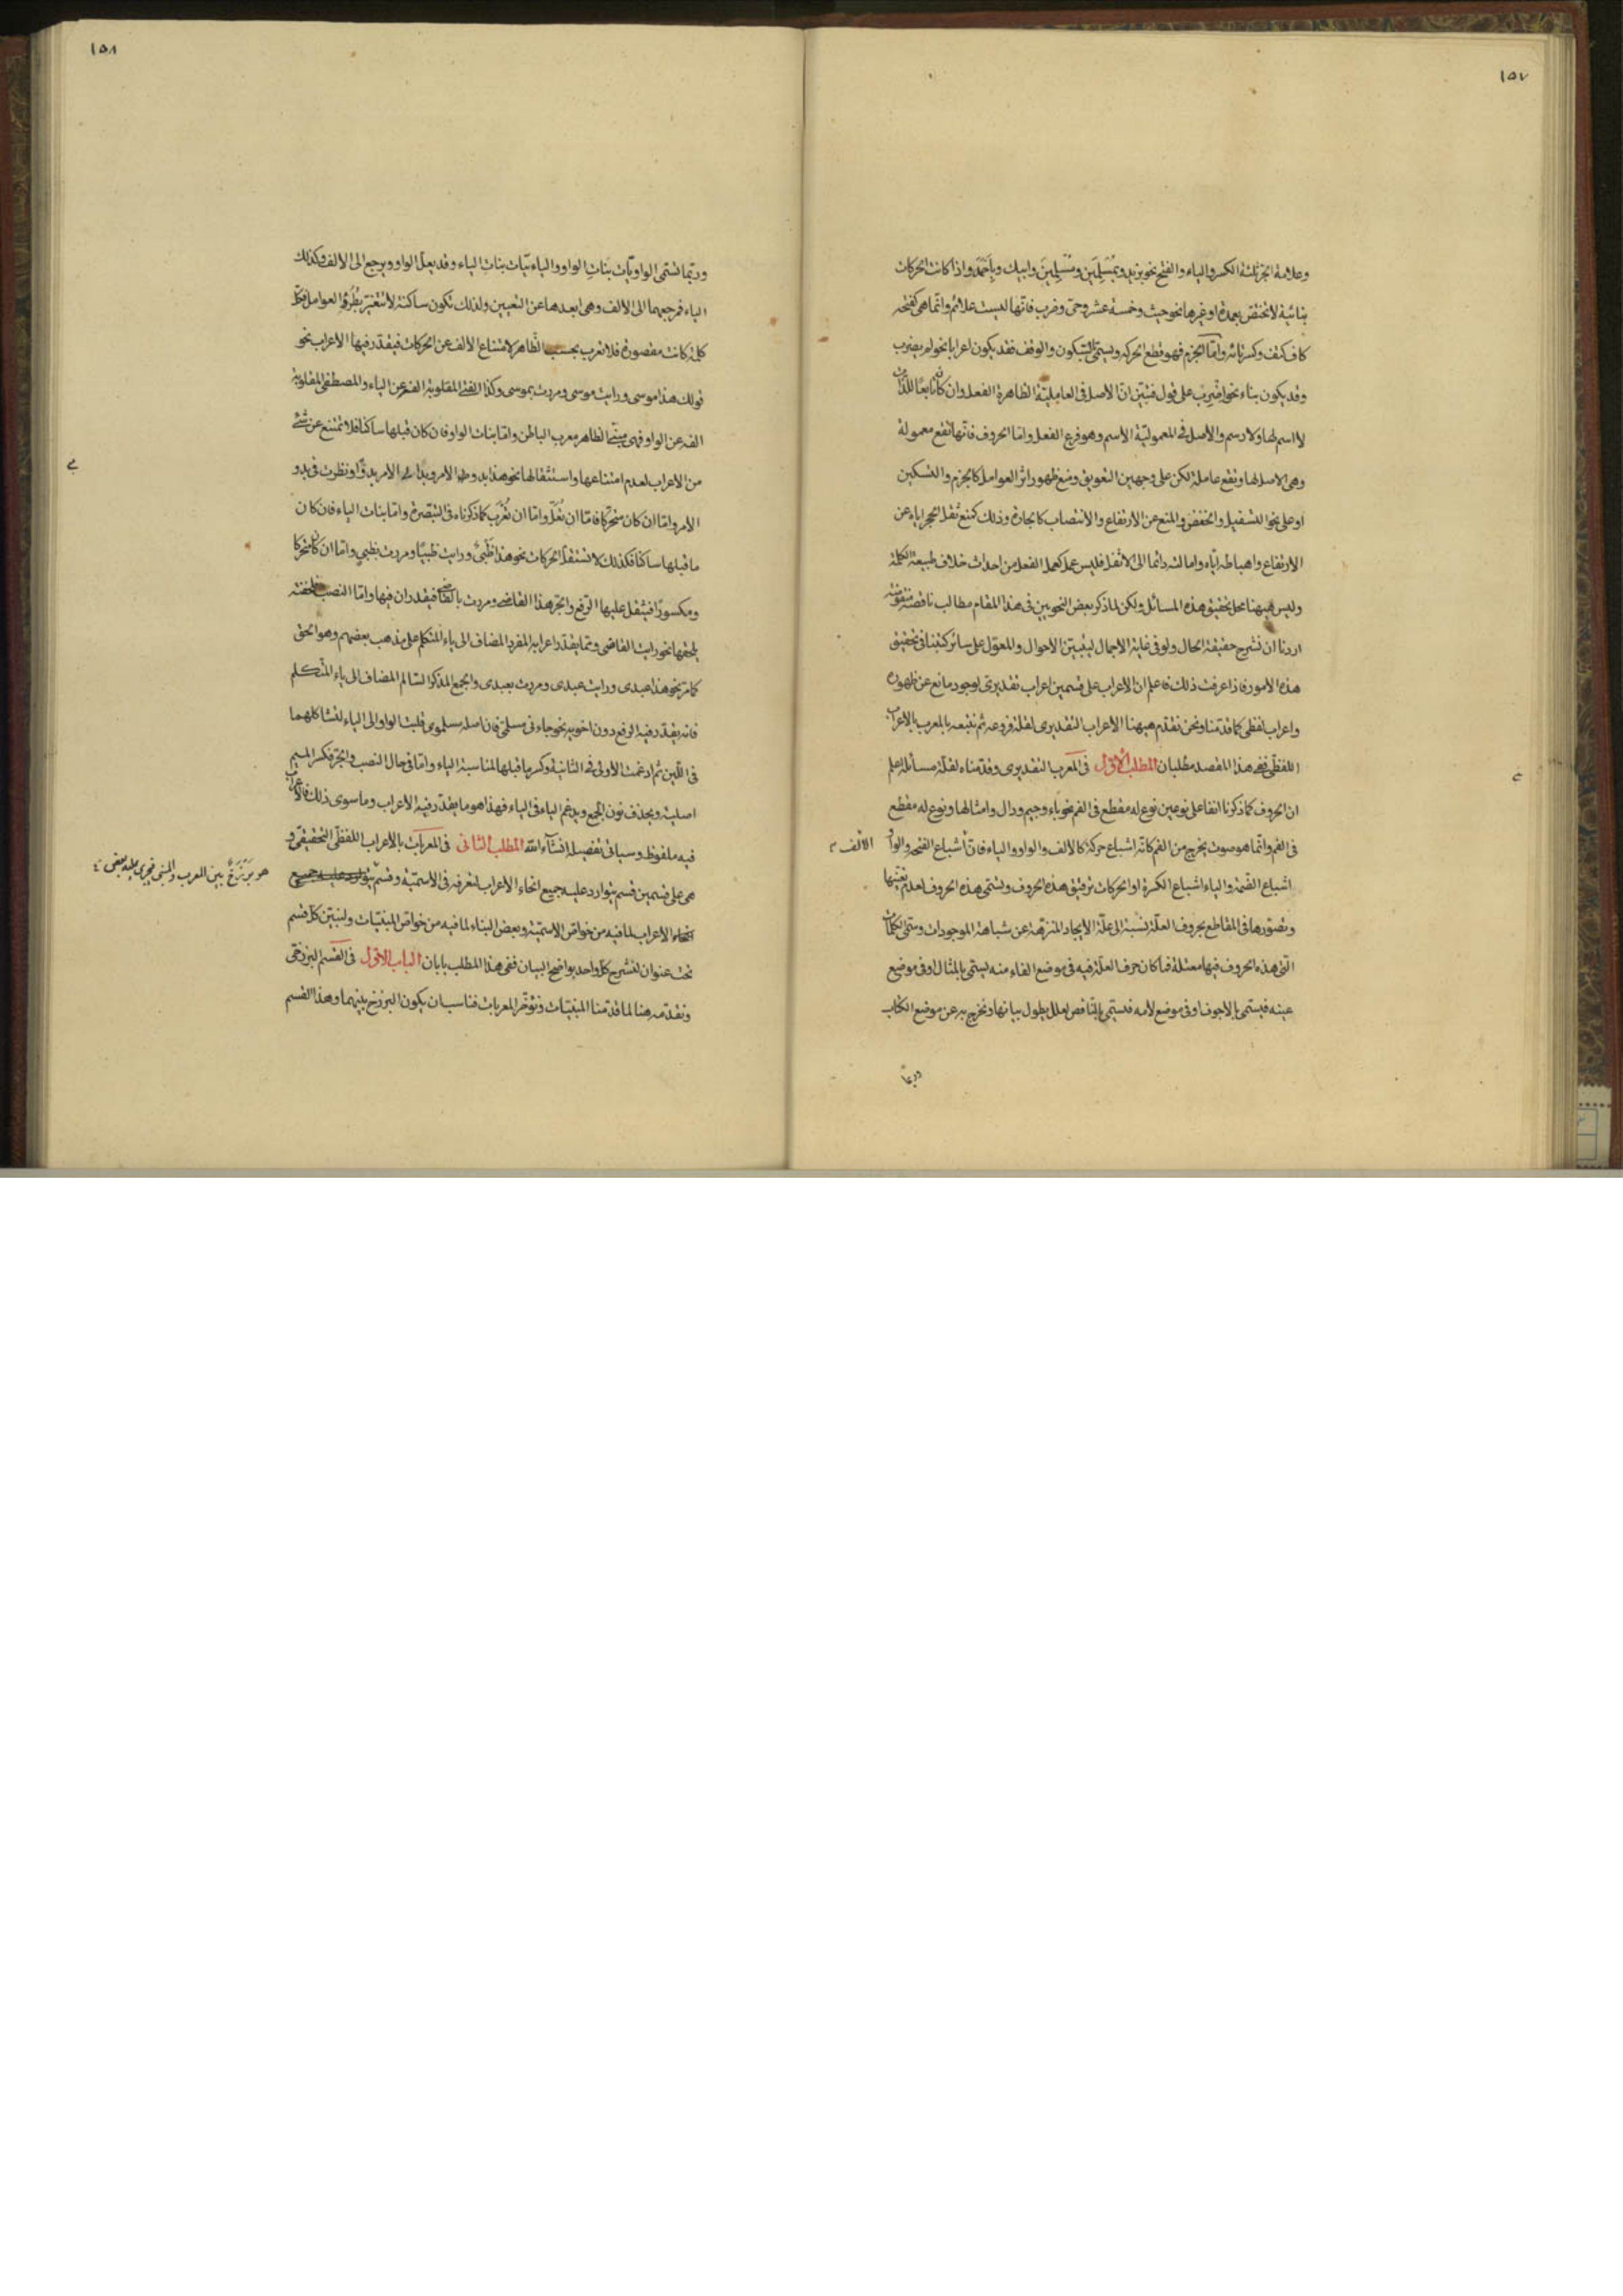 ١٥٧
وعلامة الجر ثلثة الكسر والياء والفتح نحو بزيد وبمُسْلِمَيْنِ ومُسْلِمِينَ وابيك وبأَحْمَدَ واذا كانت الحركات
بنائية لا تختص بعمدة او غيرها نحو حيث وخمسة عشر وحتى وضرب فانها ليست علائم وانما هي كفتحه
كاف كتف وكسر تائه وامّا الجزم فهو قطع الحركه ويسمى بالسكون والوقف فقد يكون اعرابا نحو لم يضرب
وقد يكون بناء نحو اضرب على قول فتبين ان الاصل في العاملية الظاهرة الفعل وان كان تابعًا للذات
لا اسم لها ولا رسم والاصل في المعمولية الاسم وهو فرع الفعل واما الحروف فانها تقع معمولة
وهي الاصل لها وتقع عاملة لكن على وجهين التعويق ومنع ظهور اثر العوامل كالجزم والتسكين
او على نحو التسفيل والخفض والمنع عن الارتفاع والانتصاب كالجارة وذلك كمنع ثقل الحجر اياه عن
الارتفاع واهباطه اياه وامالته دائما الى الاثقل فليس عمله كعمل الفعل من احداث خلاف طبيعة الكلمة
وليس هيهنا محل تحقيق هذه المسائل ولكن لما ذكر بعض النحويين في هذا المقام مطالب ناقصة
اردنا ان نشرح حقيقة الحال ولو في غاية الاجمال ليتبين الاحوال والمعول على سائر كتبنا في تحقيق
هذه الامور فاذا عرفت ذلك فاعلم ان الاعراب على قسمين اعراب تقديرى لوجود مانع عن ظهوره
واعراب لفظى كما قدمنا ونحن نقدم هيهنا الاعراب التقديرى لقلة فروعه ثم نتبعه بالمعرب بالاعراب
اللفظى ففى هذا المقصد مطلبان المطلب الاول في المعرب التقديرى وقدمناه لقلة مسائله اعلم
ان الحروف كما ذكرنا انفا على نوعين نوع له مقطع في الفم نحو باء وجيم ودال وامثالها ونوع له مقطع
في الفم وانما هو صوت يخرج من الفم كانه اشباع حركة كالالف والواو والياء فان اشباع الفتحه والواو
الالف
اشباع الضمة والياء اشباع الكسرة او الحركات ترقيق هذه الحروف وتسمى هذه الحروف لعدم تعينها
وتصورها في المقاطع بحروف العلة نسبة الى علة الايجاد المنزهة عن شباهة الموجودات وتسمى الكلمات
التى هذه الحروف فيها معتلة فما كان حرف العلة فيه في موضع الفاء منه يسمى بالمثال او في موضع
عينه فيسمى بالاجوف او في موضع لامه فيسمى بالناقص لعلل يطول بيانها ونخرج به عن موضع الكتاب
وربما
١٥٨
وربما تسمى الواويّات بنات الواو واليائيّات بنات الياء وقد يعلّ الواو ويرجع الى الالف وكذلك
الياء فمرجعهما الى الالف وهى ابعدها عن التعيين ولذلك تكون ساكنة لا تتغير بطُرُوّ العوامل فكل
كلمة كانت مقصورة فلا تعرب بحسب الظاهر لامتناع الالف عن الحركات فيقدر فيها الاعراب نحو
قولك هذا موسى ورايت موسى ومررت بموسى وكذا الفتى المقلوبة الفه عن الياء والمصطفى المقلوبة
الفه عن الواو فهى مبنى الظاهر معرب الباطن واما بنات الواو فان كان قبلها ساكنا فلا تمتنع عن شئ
من الاعراب لعدم امتناعها واستثقالها نحو هذا بدو الامر ورايت الامر بدوًا ونظرت في بدو
الامر واما ان كان متحركا فاما ان تعلّ واما ان تعرب كما ذكرناه في التبصرة واما بنات الياء فان كان
ما قبلها ساكنا فكذلك لا تستثقل الحركات نحو هذا ظبىٌ ورايت ظبيًا ومررت بظبىٍ واما ان كان متحركا
ومكسورًا فيثقل عليها الرفع والجر هذا القاضى ومررت بالقاضى فيقدران فيها واما النصب فلخفته
يلحقها نحو رايت القاضى ومما يقدر اعرابه المفرد المضاف الى ياء المتكلم على مذهب بعضهم وهو الحق
كما مر نحو هذا عبدى ورايت عبدى ومررت بعبدى والجمع المذكر السالم المضاف الى ياء المتكلم
فانه يقدر فيه الرفع دون اخويه نحو جاءنى مسلمىّ فان اصله مسلموى قلبت الواو الى الياء لتشاكلهما
فى اللين ثم ادغمت الاولى فى الثانية وكسر ما قبلها لمناسبة الياء واما فى حال النصب والجر فكسر الميم
اصلية ويحذف نون الجمع ويدغم الياء فى الياء فهذا هو ما يقدر فيه الاعراب وما سوى ذلك فالاعراب
فيه ملفوظ وسياتى تفصيله انشاء الله المطلب الثانى فى المعربات بالاعراب اللفظى الحقيقى و
هى على قسمين قسم يتوارد عليه جميع انحاء الاعراب لتعرفه فى الاسمية وقسم يتوارد عليه جميع
هو بَرْزَخٌ بين المعرب والمبنى فيجرى عليه بعض
انحاء الاعراب لما فيه من خواص الاسمية وبعض البناء لما فيه من خواص المبنيات ولنبين كل قسم
تحت عنوان لنشرح كل واحد بواضح البيان ففى هذا المطلب بابان الباب الاول فى القسم البرزخى
ونقدمه هنا لما قدمنا المبنيات ونؤخر المعربات فناسب ان يكون البرزخ بينهما وهذا القسم